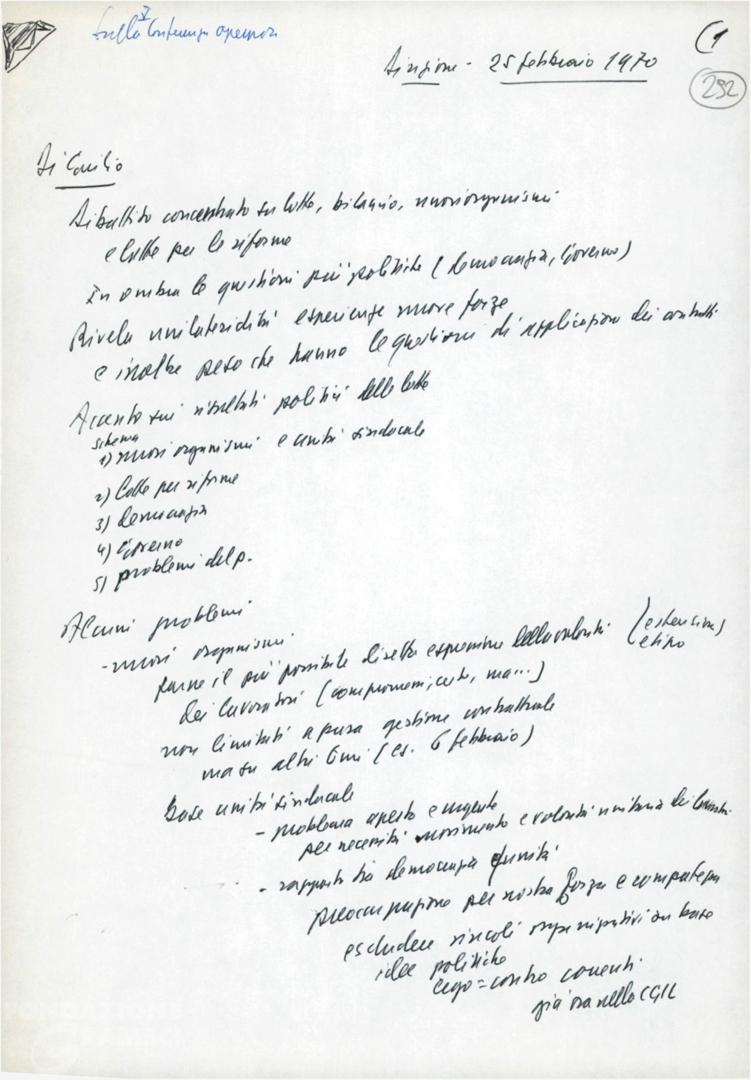 Sulla V Conferenza operaia
(1
Direzione - 25 febbraio 1970
292
Di Giulio
Dibattito concentrato su lotte, bilancio, nuovi organismi
e lotte per le riforme
In ombra le questioni più politiche (democrazia, Governo)
Rivela unilateralità esperienze nuove forze
e inoltre peso che hanno le questioni di applicazione dei contratti
Accento sui risultati politici delle lotte
schema
1) nuovi organismi e unità sindacale
2) lotte per riforme
3) democrazia
4) Governo
5) problemi del p.
Alcuni problemi
- nuovi organismi
farne il più possibile diretta espressione della volontà (estensione)
e tipo
dei lavoratori (compromessi, certo, ma...)
non limitati a pura gestione contrattuale
ma su altri temi (es. 6 febbraio)
base unità sindacale
- problema aperto e urgente
per necessità movimento e volontà unitaria dei lavorat.
- rapporti tra democrazia e unità
preoccupazione per nostra forza e compattezza
escludere vincoli organizzativi su base
idee politiche
ergo = contro correnti
già ora nella CGIL
FONDAZIONE
GRAMSCI